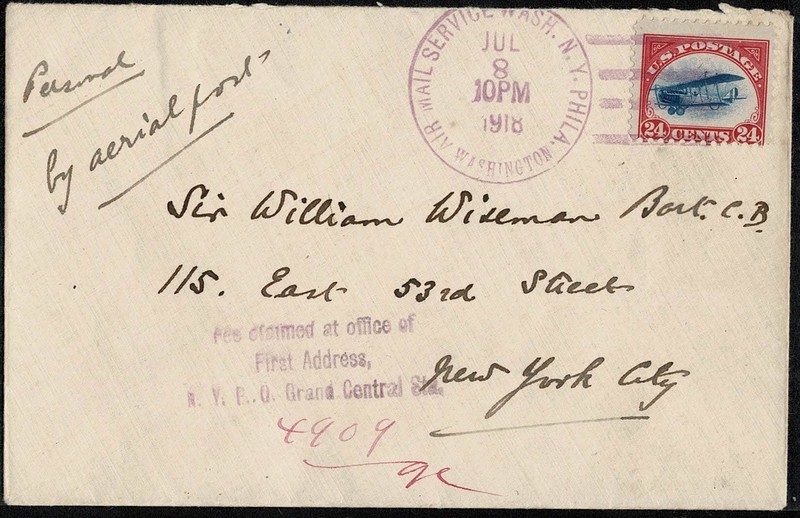 Personal
by aerial post
AIR MAIL SERVICE WASH. N.Y. PHILA.
JUL
8
10PM
1918
WASHINGTON.
U.S. POSTAGE
24 CENTS 24
Sir William Wiseman Bart. C.B.
115. East 53rd Street
Fee claimed at office of
First Address,
N. Y. P. O. Grand Central Sta.
New York City
4909